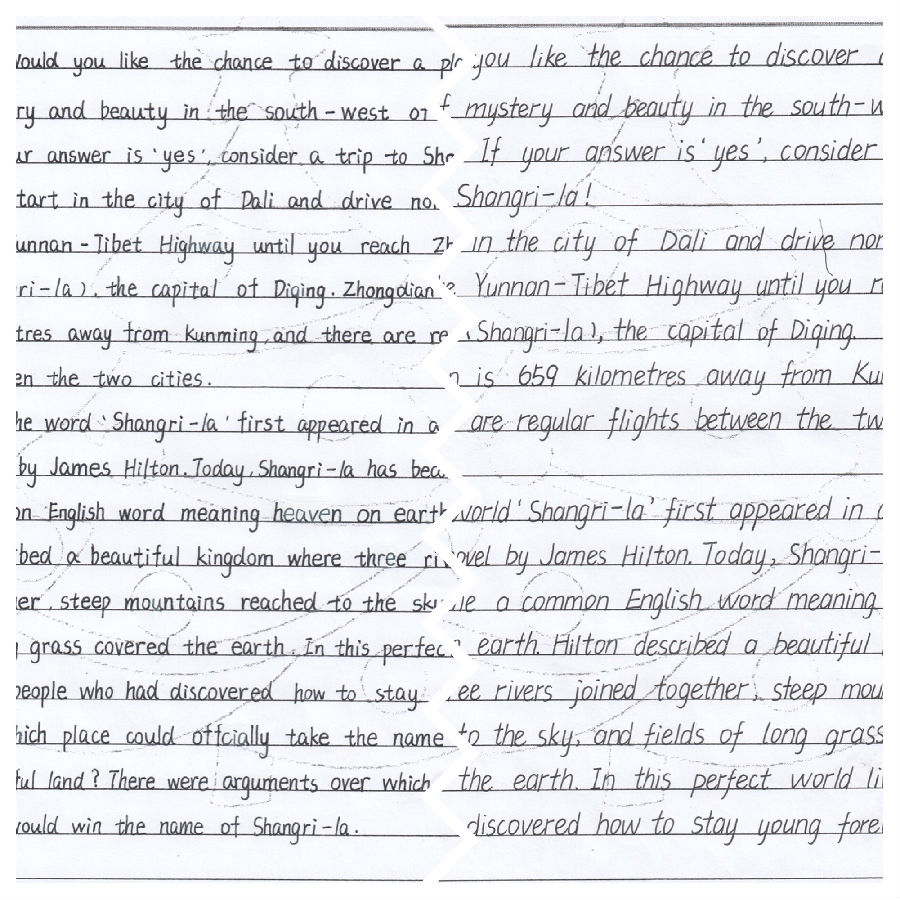 ould you like the chance to discover a pl
ry and beauty in the south-west of
ur answer is 'yes', consider a trip to Sh
tart in the city of Dali and drive no
unnan-Tibet Highway until you reach Zh
ri-la), the capital of Diqing. Zhongdian
tres away from Kunming, and there are re
en the two cities.
he word 'Shangri-la' first appeared in a
by James Hilton. Today, Shangri-la has bec
on English word meaning heaven on earth
bed a beautiful kingdom where three ri
er, steep mountains reached to the sky
grass covered the earth. In this perfec
people who had discovered how to stay
hich place could offcially take the name
ful land? There were arguments over which
ould win the name of Shangri-la.
you like the chance to discover
mystery and beauty in the south-w
If your answer is 'yes', consider
Shangri-la!
in the city of Dali and drive nor
Yunnan-Tibet Highway until you r
(Shangri-la), the capital of Diqing.
n is 659 kilometres away from Ku
are regular flights between the tw
world 'Shangri-la' first appeared in
ovel by James Hilton. Today, Shangri-
e a common English word meaning
earth. Hilton described a beautiful
ee rivers joined together, steep mou
to the sky, and fields of long grass
the earth. In this perfect world li
discovered how to stay young fore